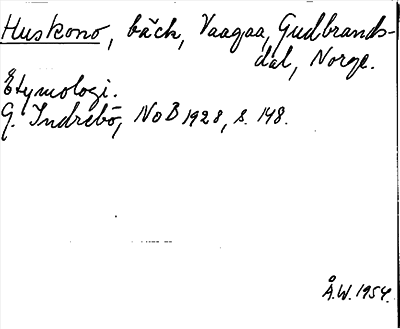 Huskono, bäck, Vaagaa, Gudbrands-
dal, Norge.
Etymologi.
G. Indrebö, NoB 1928, s. 148.
Å.W. 1954.